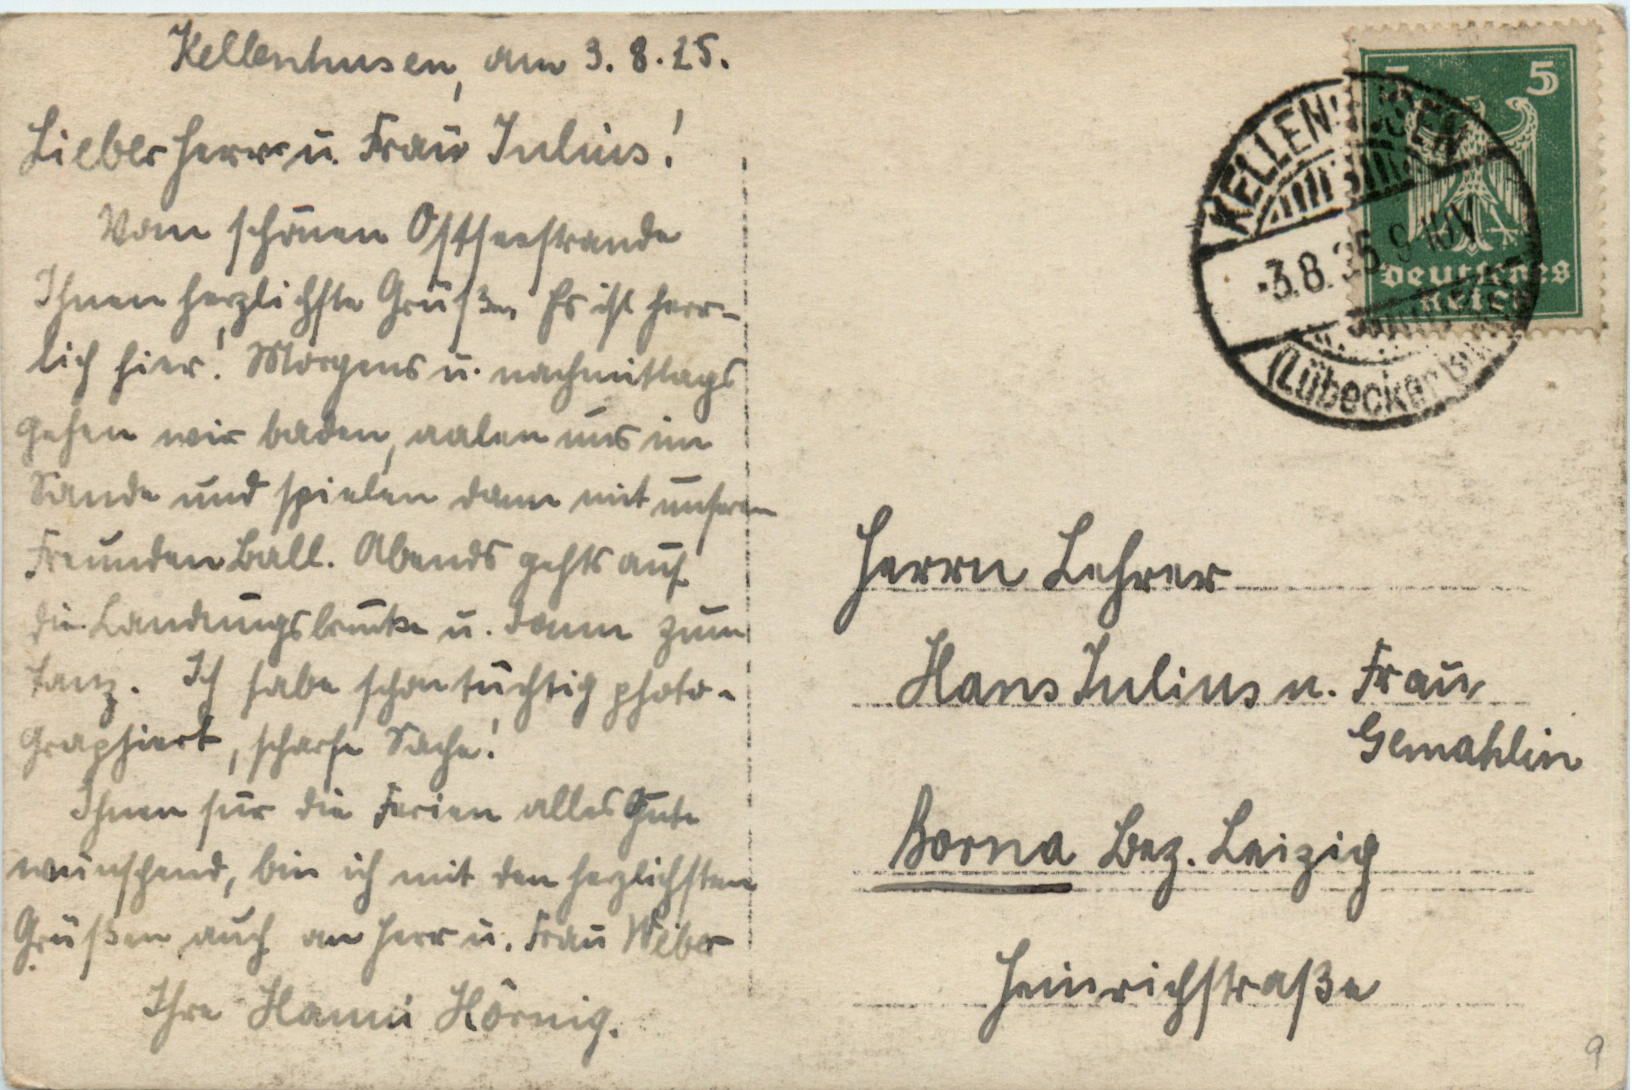 Kellenhusen, am 3. 8. 25.
Lieber Herr u. Frau Julius!
Vom schönen Ostseestrande
Ihnen herzlichste Grüße. Es ist herr-
lich hier! Morgens u. nachmittags
gehen wir baden, aalen uns im
Sande und spielen dann mit unseren
Freunden Ball. Abends gehts auf
die Landungsbrücke u. dann zum
Tanz. Ich habe schon tüchtig photo-
graphiert, scharfe Sache!
Ihnen für die Ferien alles Gute
wünschend, bin ich mit den herzlichsten
Grüßen, auch an Herr u. Frau Weber
Ihre Hanni Hörnig.
5 5
Deutsches
Reich
KELLENHUSEN
-3.8.25 9-10V
(Lübecker
Herrn Lehrer
Hans Julius u. Frau
Gemahlin
Borna Bez. Leizig
Heinrichstraße
9